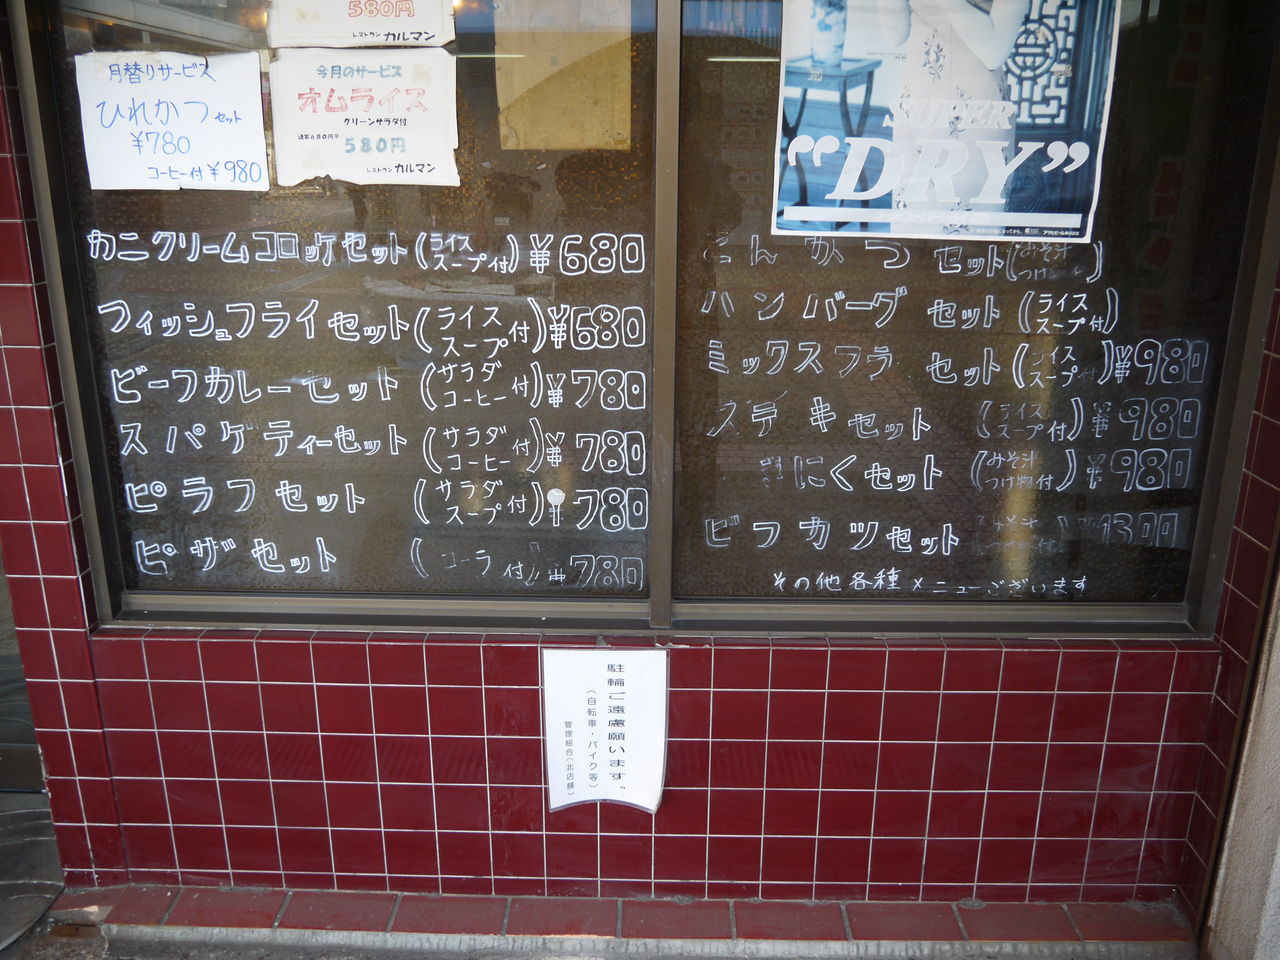 580円
レストラン カルマン
月替りサービス
ひれかつ セット
¥780
コーヒー付 ¥980
今月のサービス
オムライス
グリーンサラダ付
通常680円ヲ
580円
レストラン カルマン
SUPER
"DRY"
カニクリームコロッケセット(ライス スープ付)¥680
フィッシュフライセット(ライス スープ付)¥680
ビーフカレーセット(サラダ コーヒー付)¥780
スパゲティーセット(サラダ コーヒー付)¥780
ピラフセット(サラダ スープ付)¥780
ピザセット(コーラ付)¥780
とんかつセット(みそ汁 つけ
ハンバーグセット(ライス スープ付)
ミックスフラ セット(ライス スープ付)¥980
ステキセット(ライス スープ付)¥980
きにくセット(みそ汁 つけ物付)¥980
ビフカツセット(みそ汁 ¥1300
その他各種メニューございます
駐輪ご遠慮願います。
(自転車・バイク等)
管理組合(北店舗)